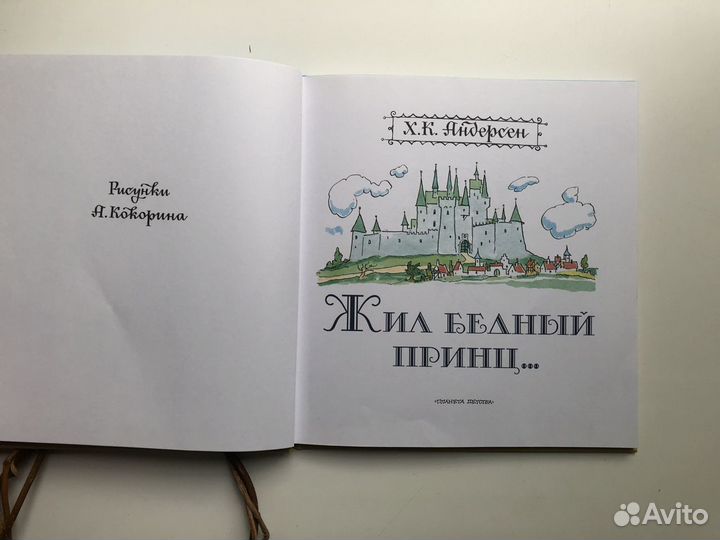 Рисунки
А. Кокорина
Х.К. Андерсен
Жил бедный
принц...
«планета детства»
Avito